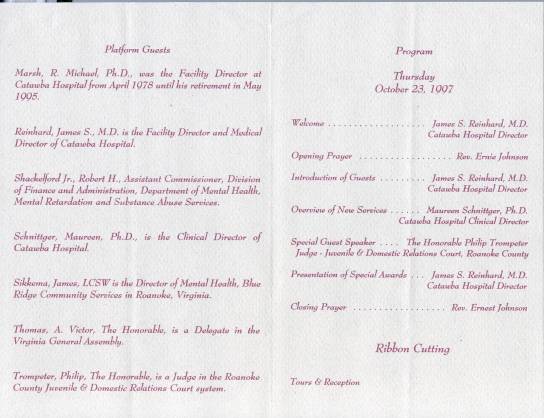 Platform Guests
Marsh, R. Michael, Ph.D., was the Facility Director at
Catawba Hospital from April 1978 until his retirement in May
1995.
Reinhard, James S., M.D. is the Facility Director and Medical
Director of Catawba Hospital.
Shackelford Jr., Robert H., Assistant Commissioner, Division
of Finance and Administration, Department of Mental Health,
Mental Retardation and Substance Abuse Services.
Schnittger, Maureen, Ph.D., is the Clinical Director of
Catawba Hospital.
Sikkema, James, LCSW is the Director of Mental Health, Blue
Ridge Community Services in Roanoke, Virginia.
Thomas, A. Victor, The Honorable, is a Delegate in the
Virginia General Assembly.
Trompeter, Philip, The Honorable, is a Judge in the Roanoke
County Juvenile & Domestic Relations Court system.
Program
Thursday
October 23, 1997
Welcome . . . . . . . . . . . . . . . . . . . James S. Reinhard, M.D.
Catawba Hospital Director
Opening Prayer . . . . . . . . . . . . . . . . . . Rev. Ernie Johnson
Introduction of Guests . . . . . . . . . James S. Reinhard, M.D.
Catawba Hospital Director
Overview of New Services . . . . . . Maureen Schnittger, Ph.D.
Catawba Hospital Clinical Director
Special Guest Speaker . . . . The Honorable Philip Trompeter
Judge - Juvenile & Domestic Relations Court, Roanoke County
Presentation of Special Awards . . . James S. Reinhard, M.D.
Catawba Hospital Director
Closing Prayer . . . . . . . . . . . . . . . . . . Rev. Ernest Johnson
Ribbon Cutting
Tours & Reception